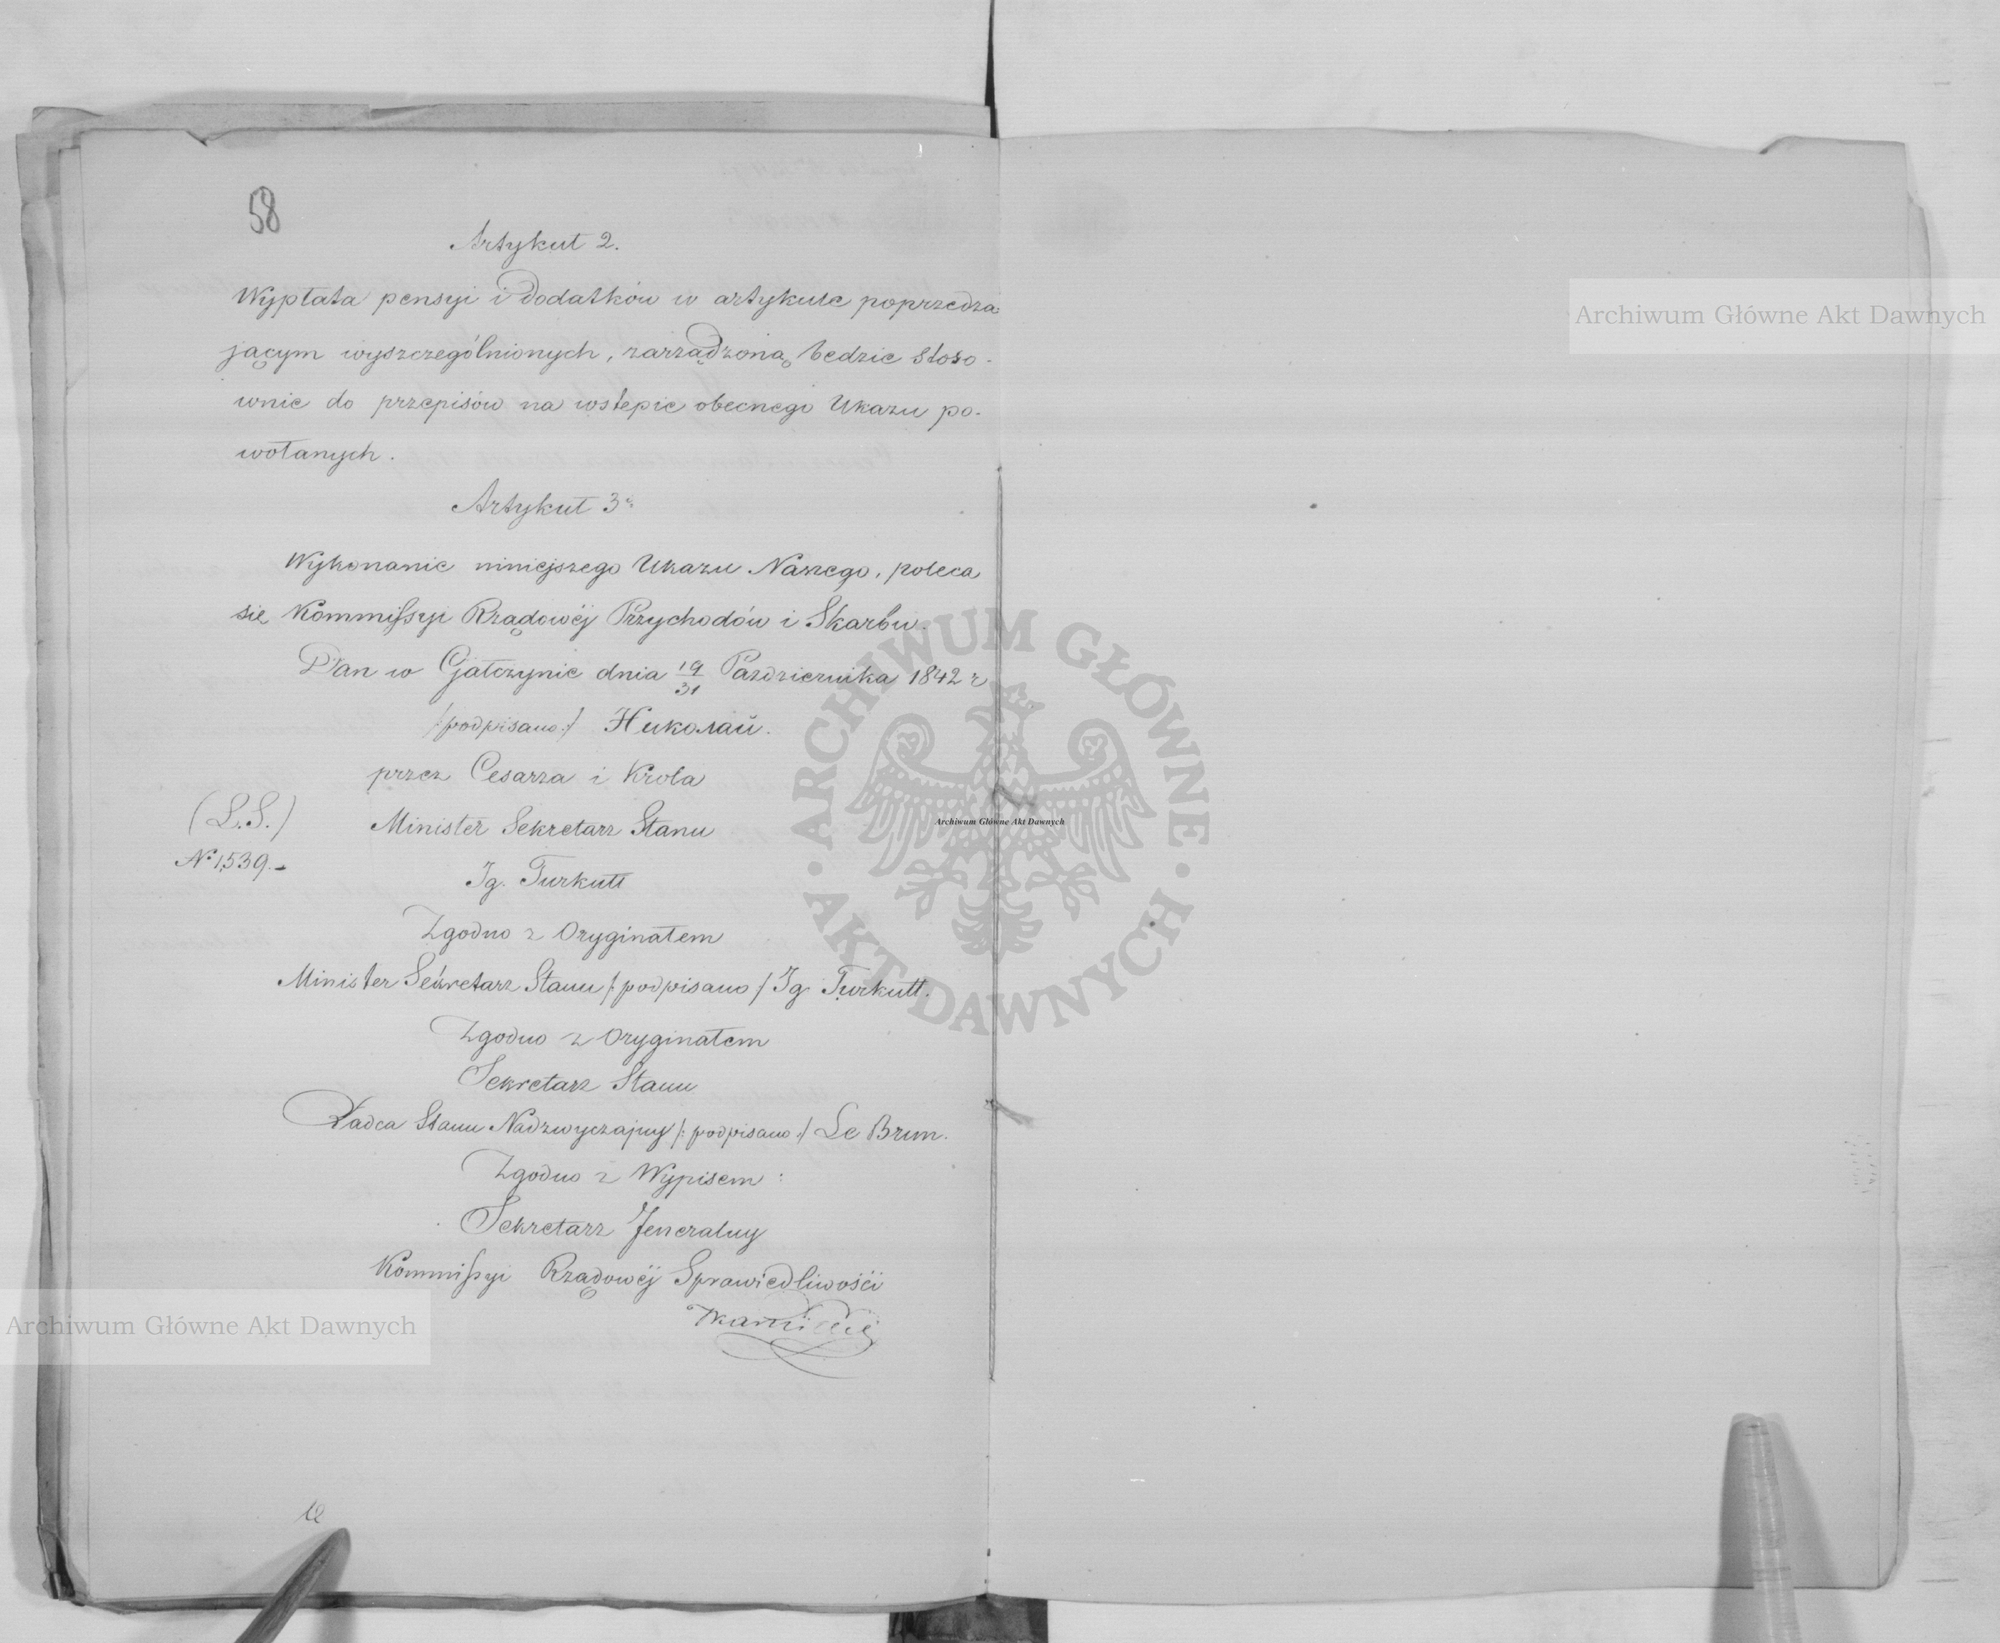 58
Artykuł 2.
Wypłata pensyi i Dodatków w artykule poprzedza
jącym wyszczególnionych, zarządzoną będzie stoso-
wnie do przepisów na wstępie obecnego Ukazu po-
wołanych.
Artykuł 3.
Wykonanie niniejszego Ukazu Naszego, poleca
się Kommissyi Rządowéj Przychodów i Skarbu.
Dan w Gatczynie dnia 19/31 Października 1842 r
/podpisano:/ Николай.
przez Cesarza i Króla
(L.S.) Minister Sekretarz Stanu
№ 1,539.-
Ig. Turkułł
Zgodno z Oryginałem
Minister Sekretarz Stanu /:podpisano:/ Ig. Turkułł.
Zgodno z Oryginałem
Sekretarz Stanu
Radca Stanu Nadzwyczajny /:podpisano:/ Le Brun.
Zgodno z Wypisem:
Sekretarz Jeneralny
Kommissyi Rządowéj Sprawiedliwości
Archiwum Główne Akt Dawnych
Archiwum Główne Akt Dawnych
Archiwum Główne Akt Dawnych
ARCHIWUM GŁÓWNE AKT DAWNYCH